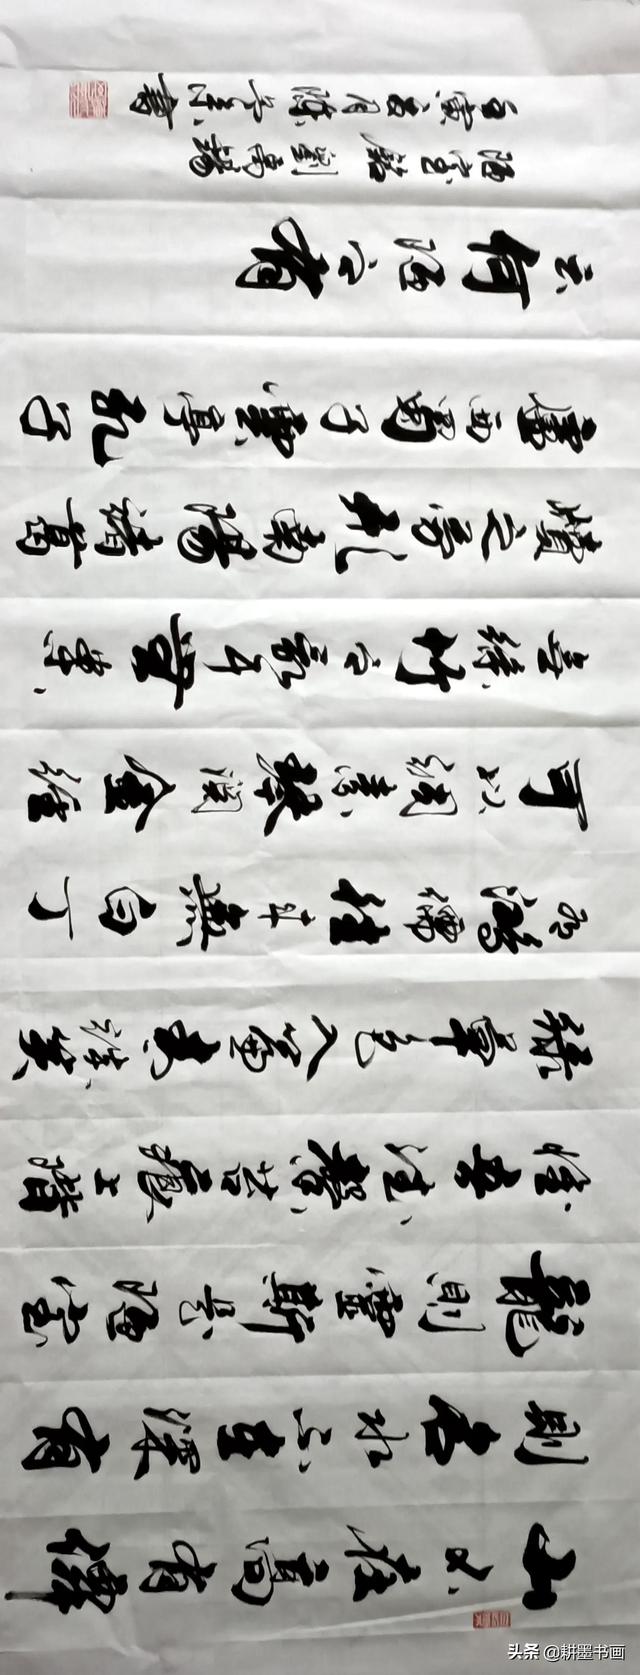 山不在高有僊
則名水不在深有
龍則靈斯是陋室
惟吾德馨苔痕上階
綠草色入簾青談笑
有鴻儒往來無白丁
可以調素琴閱金經
無絲竹之亂耳無案
牘之勞形南陽諸葛
廬西蜀子雲亭孔子
云何陋之有
陋室銘劉禹錫
寅月陳書
头条 @耕墨书画